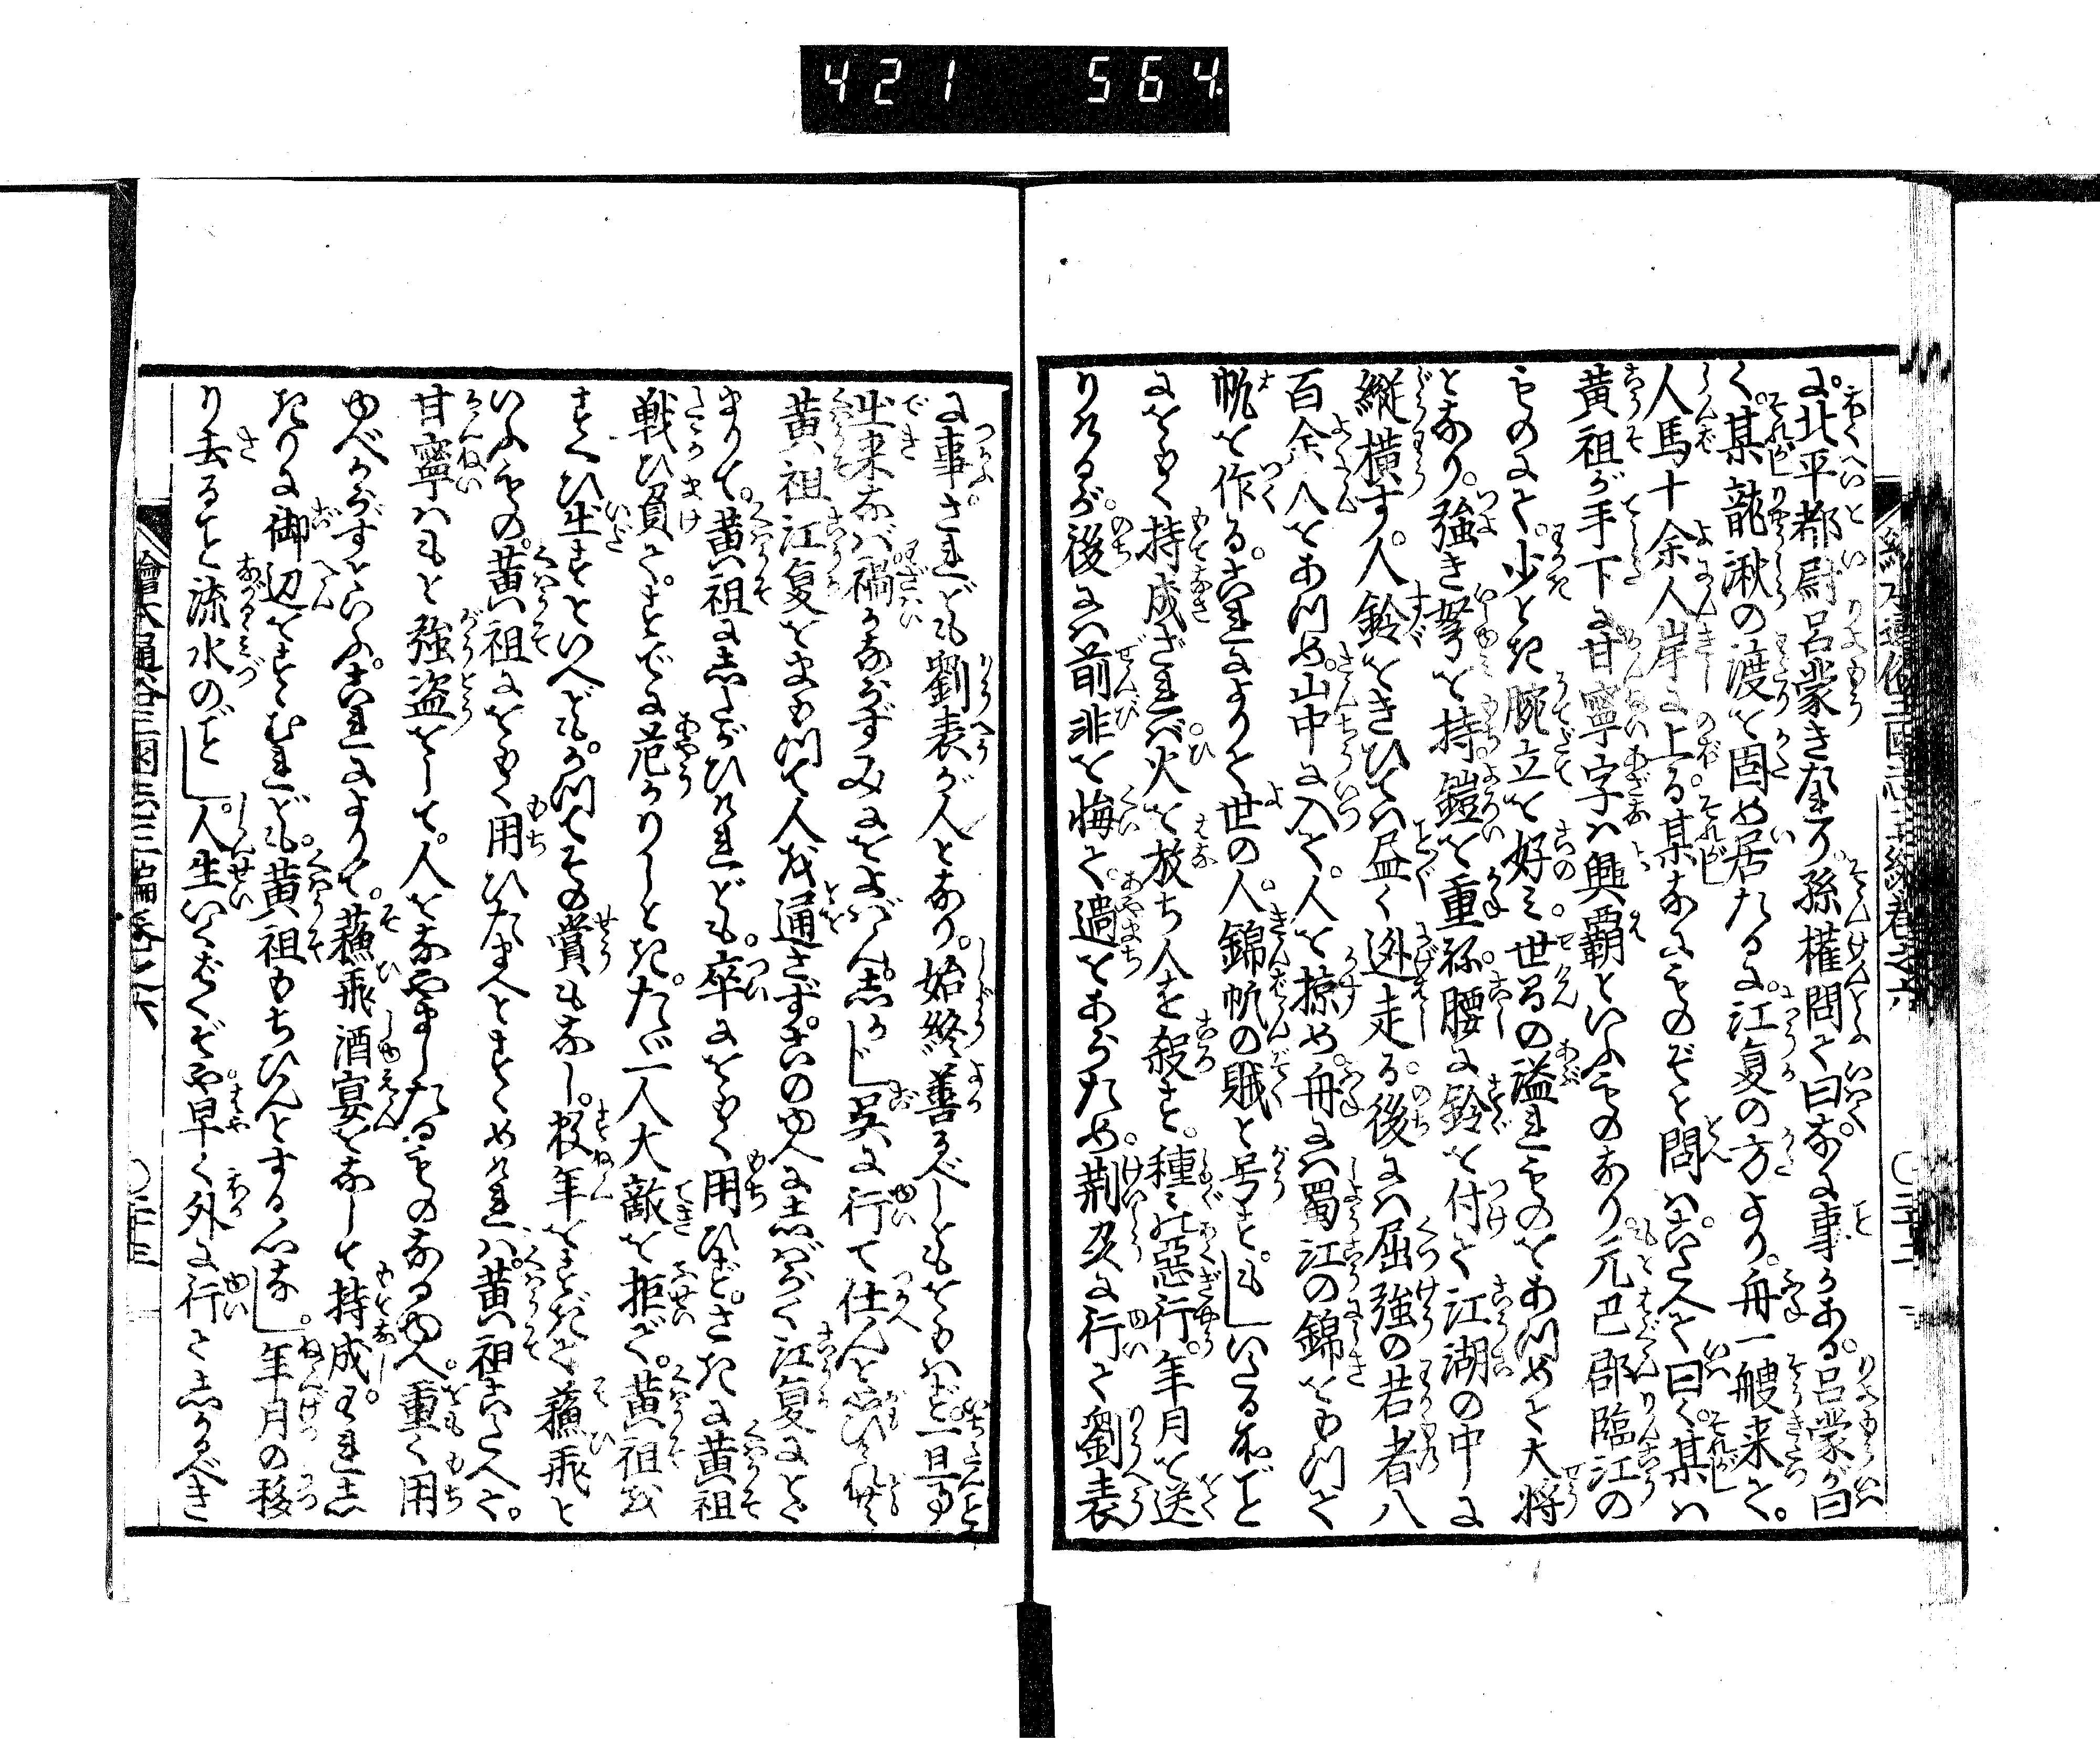 421 564
に。北平都尉呂蒙きたり。孫權問て曰。なに事かある。呂蒙が曰
く。某龍湫の渡を固め居たるに。江夏の方より。舟一艘来て。
人馬十余人岸に上る。某なにものぞと問ば。こたへて曰く。某は
黄祖が手下に。甘寧字は興覇といふものあり。元巴郡臨江の
ものにて。少とき腕立を好み。世間の溢れものをあつめて大将
となり。強き弩を持。鎧を重ね。腰に鈴を付て江湖の中に
縦横す。人鈴をきひては尽く逃走る。後には屈強の若者八
百余人をあつめ。山中に入て。人を掠め。舟には蜀江の錦をもつて
帆を作る。これによりて世の人。錦帆の賊と号す。もしいたるほど
にをもく持成ざれば火を放ち人を殺す。種々の悪行。年月を送
りけるが。後には前非を悔て。過をあらため。荊州に行て劉表
に事。されども劉表が人となり。始終善るべしともをもはず。一旦事
出来なば禍かならずみにをよばん。しかじ呉に行て仕んと思ひけれ共
黄祖江夏をまもつて人を通さず。このゆへにしばらく江夏にとど
まりて。黄祖にしたがひけれども。卒にをもく用ひず。さきに黄祖
戦ひ負て。すでに危かりしとき。たゞ一人大敵を拒ぎ。黄祖を
すくひ出すといへども。かつてその賞もなし。数年をすぎて蘇飛と
いふもの。黄祖にをもく用ひたまへとすゝめければ。黄祖こたへて。
甘寧はもと強盗をして。人をなやましたるものなるゆへ。重く用
ゆべからずといふ。これによりて。蘇飛酒宴をなして持成。われし
きりに御辺をすゝむれども。黄祖もちひんとする心なし。年月の移
り去ること流水のごとし。人生いくばくぞや早く外に行てしかるべき
繪本通俗三國志三編卷之六
〇二十三